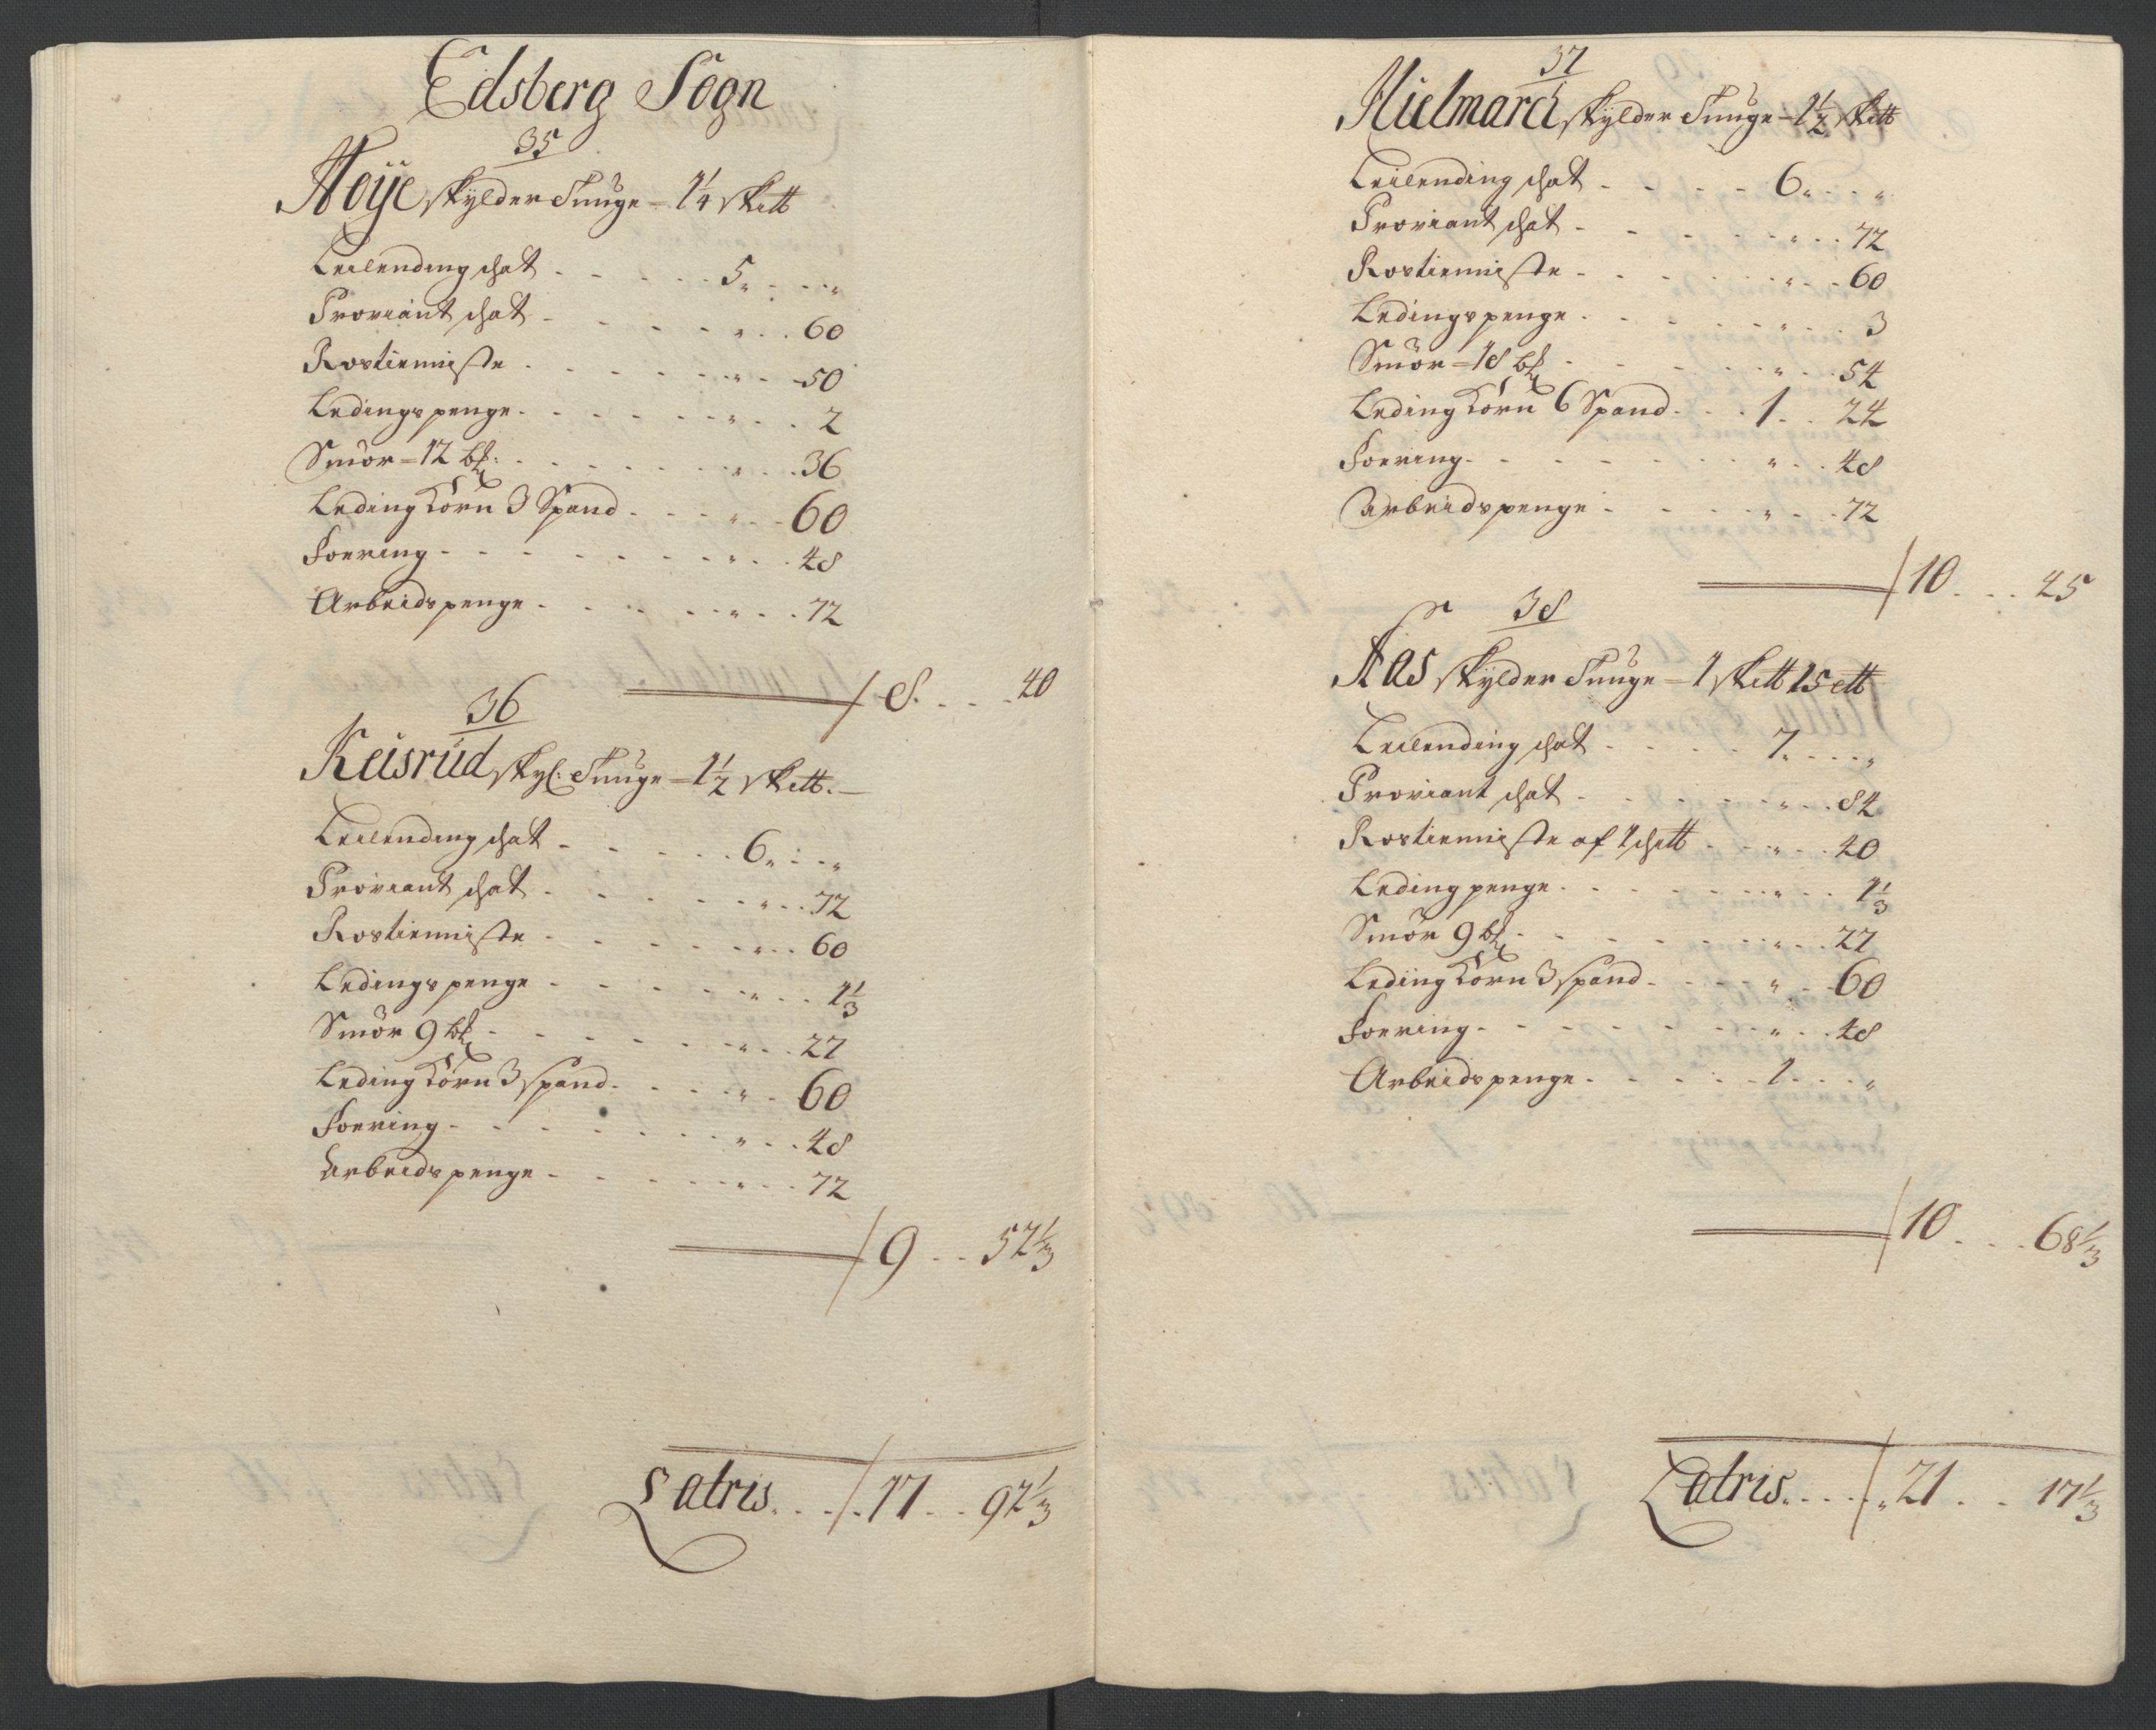 Edsberg Sogn
35
Høÿe skylder Tunge = 1 1/4 skltt
Leilending schat - - - - - 5 „ - - „
Proviant schat - - - - „ - - 60
Rostienniste - - - - - „ - - 50
Ledingspenge - - - - - „ - - 2
Smör = 12 b℔: - - - - - „ - - 36
Leding Korn 3 Spand - - - „ - - 60
Foering - - - - - - „ - - 48
Arbeidspenge - - - - „ - - 72
8. - - - 40
36
Keisrud skyl: Tunge = 1 1/2 skltt. —
Leilending schat - - - - - 6 „ - - „
Proviant schat - - - - - „ - - 72
Rostienniste - - - - - „ - - 60
Ledingspenge - - - - - „ - - 1 1/3
Smör 9 b℔ - - - - - „ - - 27
Leding Korn 3 spand - - - „ - 60
Foering - - - - - - „ - - 48
Arbeidspenge - - - - „ - - 72
9 - - 52 1/3
Latris - - - 17 - - 92 1/3
37
Hielmarck skylder Tunge = 1 1/2 skltt
Leilending schat - - - - 6 „ - - „
Proviant schat - - - - - „ - - 72
Rostienniste - - - - - „ - - 60
Ledingspenge - - - - - „ - - 3
Smör = 18 b℔ - - - - „ - - 54
Leding Korn 6 Spand - - - 1 - - 24
Foering - - - - - - „ - - 48
Arbeidspenge - - - - „ - - 72
10 - - - 45
38
Aas skylder Tunge = 1 skltt 15 ltt
Leilending schat - - - - 7 „ - - „
Proviant schat - - - - - „ - - 84
Rostienniste af 1 schltt - - „ - - 40
Leding penge - - - - - „ - - 1 1/3
Smör 9 b℔ - - - - - „ - - 27
Leding Korn 3 spand - - - „ - - 60
Foering - - - - - - „ - - 48
Arbeidspenge - - - - - 1 - - „
10 - - - 68 1/3
Latris - - - - „ 21 - - 17 1/3